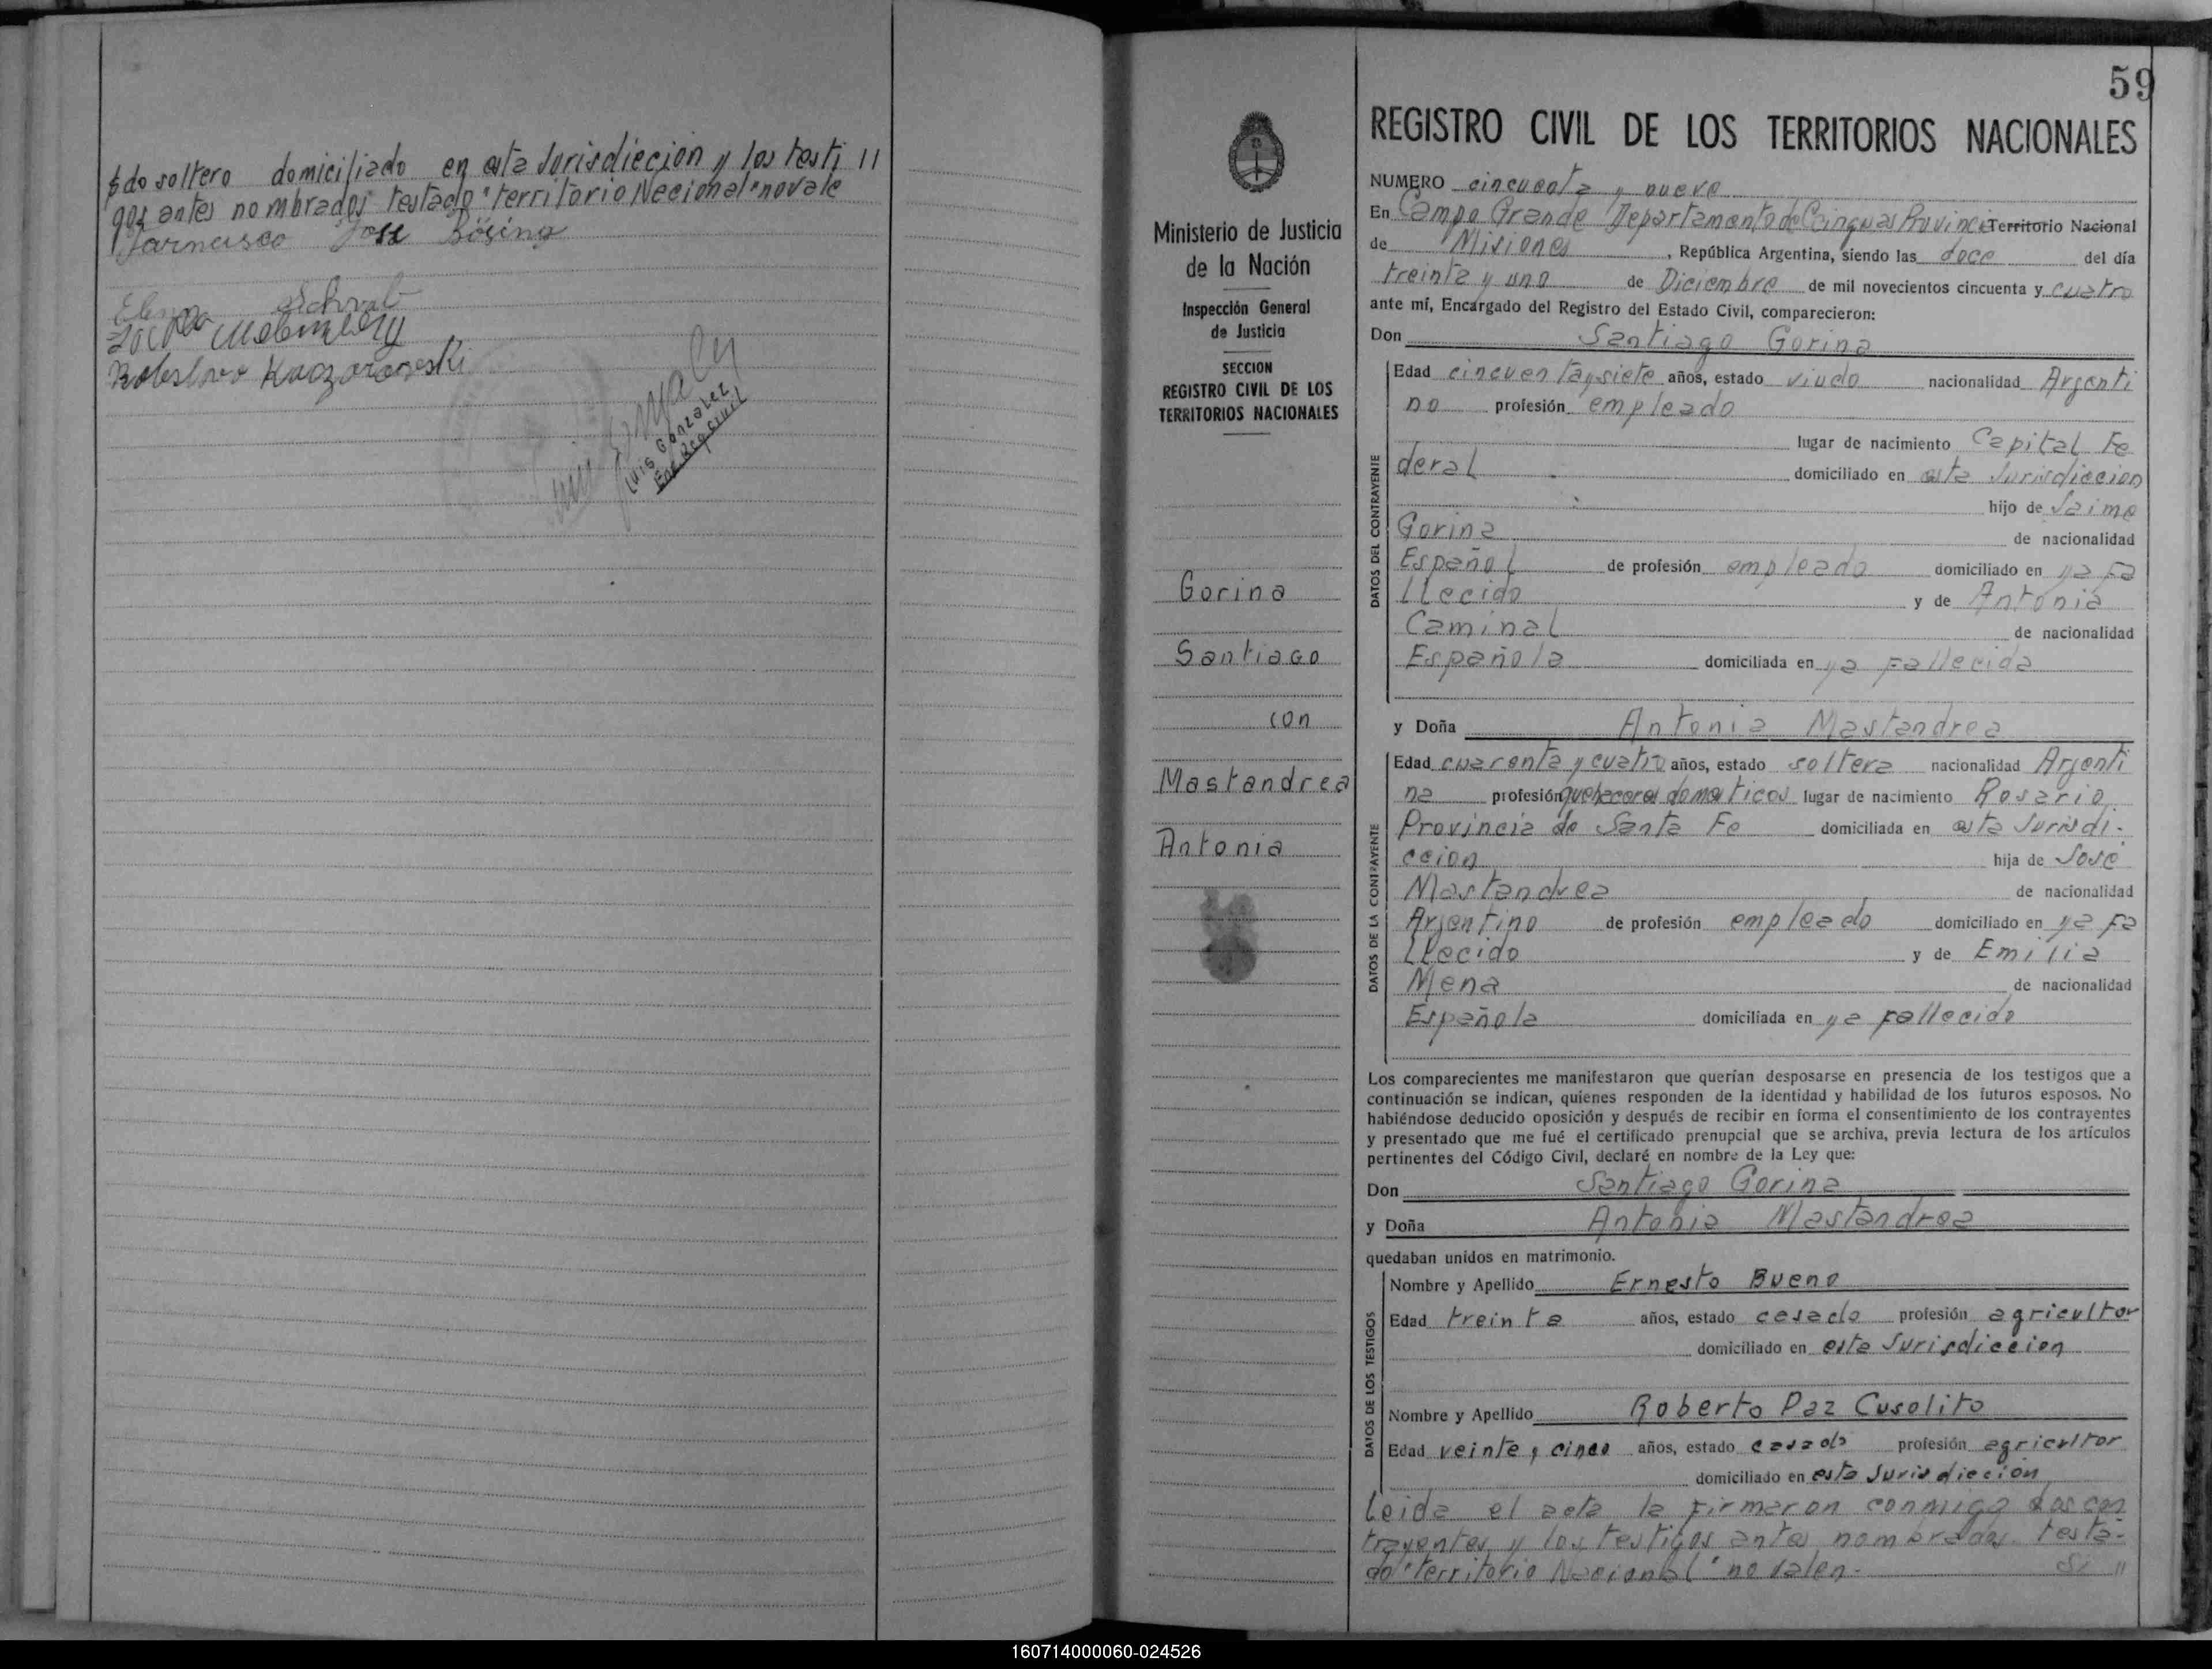 do soltero domiciliado en esta Jurisdiccion y los testi //
gos antes nombrados testado "territorio Nacional" no vale
José Bösing
Elena
Boleslavo
Luis Gonzalez
Enc. Reg. Civil
Ministerio de Justicia
de la Nación
Inspección General
de Justicia
SECCION
REGISTRO CIVIL DE LOS
TERRITORIOS NACIONALES
Gorina
Santiago
con
Mastandrea
Antonia
59
REGISTRO CIVIL DE LOS TERRITORIOS NACIONALES
NUMERO cincuenta y nueve
En Campo Grande Departamento de Cainguas Provincia Territorio Nacional
de Misiones, República Argentina, siendo las doce del día
treinta y uno de Diciembre de mil novecientos cincuenta y cuatro
ante mí, Encargado del Registro del Estado Civil, comparecieron:
Don Santiago Gorina
DATOS DEL CONTRAYENTE
Edad cincuentaysiete años, estado viudo nacionalidad Argenti
no profesión empleado
lugar de nacimiento Capital Fe
deral domiciliado en esta Jurisdiccion
hijo de Jaime
Gorina de nacionalidad
Español de profesión empleado domiciliado en ya fa
llecido y de Antonia
Caminal de nacionalidad
Española domiciliada en ya fallecida
y Doña Antonia Mastandrea
DATOS DE LA CONTRAYENTE
Edad cuarenta y cuatro años, estado soltera nacionalidad Argenti
na profesión quehaceres domesticos lugar de nacimiento Rosario
Provincia de Santa Fe domiciliada en esta Jurisdi-
ccion hija de José
Mastandrea de nacionalidad
Argentino de profesión empleado domiciliado en ya fa
llecido y de Emilia
Mena de nacionalidad
Española domiciliada en ya fallecida
Los comparecientes me manifestaron que querían desposarse en presencia de los testigos que a
continuación se indican, quienes responden de la identidad y habilidad de los futuros esposos. No
habiéndose deducido oposición y después de recibir en forma el consentimiento de los contrayentes
y presentado que me fué el certificado prenupcial que se archiva, previa lectura de los artículos
pertinentes del Código Civil, declaré en nombre de la Ley que:
Don Santiago Gorina
y Doña Antonia Mastandrea
quedaban unidos en matrimonio.
DATOS DE LOS TESTIGOS
Nombre y Apellido Ernesto Bueno
Edad treinta años, estado casado profesión agricultor
domiciliado en esta Jurisdiccion
Nombre y Apellido Roberto Paz Cusolito
Edad veinte y cinco años, estado casado profesión agricultor
domiciliado en esta Jurisdiccion
Leida el acta la firmaron conmigo los con
trayentes y los testigos antes nombrados testa-
do "territorio Nacional" no valen- Si //
160714000060-024526